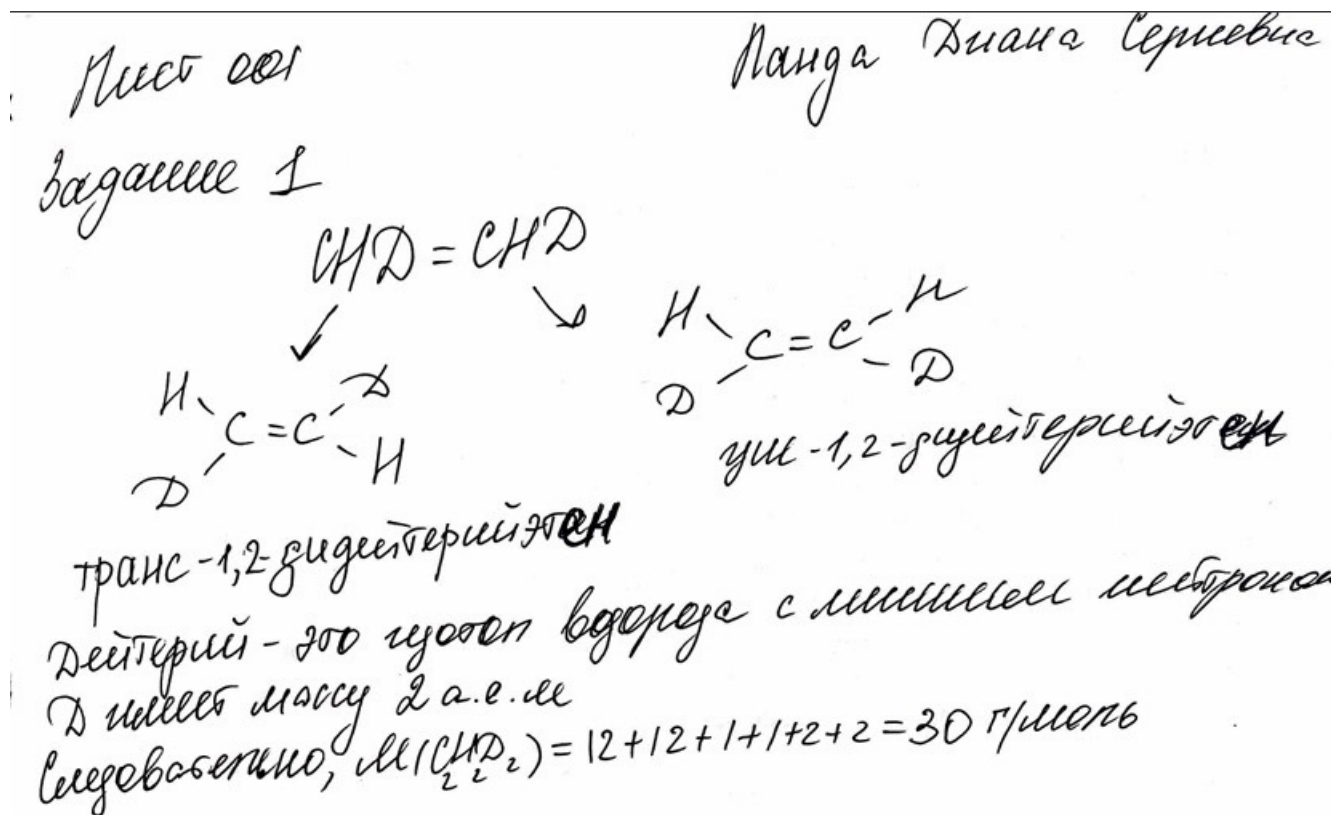 Лист 001
Панда Диана Сергеевна
Задание 1
CHD = CHD
H D
C = C
D H
H H
C = C
D D
транс-1,2-дидейтерийэтен
цис-1,2-дидейтерийэтен
Дейтерий - это изотоп водорода с лишним нейтроном
D имеет массу 2 а.е.м
Следовательно, M(C2H2D2) = 12+12+1+1+2+2 = 30 г/моль